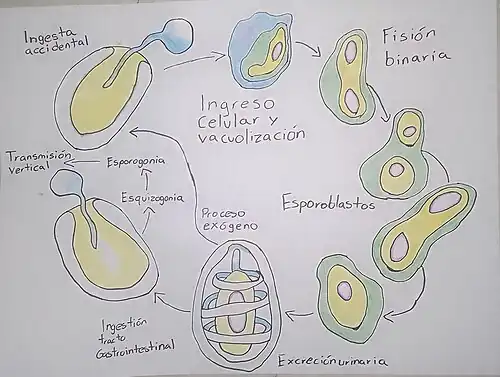 Ingesta
accidental
Fisión
binaria
Ingreso
Celular y
vacuolización
Transmisión
vertical
Esporogonia
Esquizogonia
Proceso
exógeno
Esporoblastos
Ingestión
tracto
Gastrointestinal
Excreción urinaria